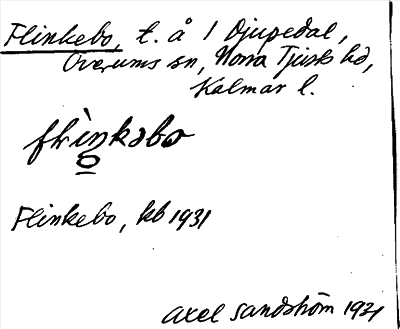 Flinkebo, t. å 1 Djupedal,
Överums sn, Norra Tjust hd,
Kalmar l.
flìnkəbo
Flinkebo, kb 1931
Axel Sandström 1931